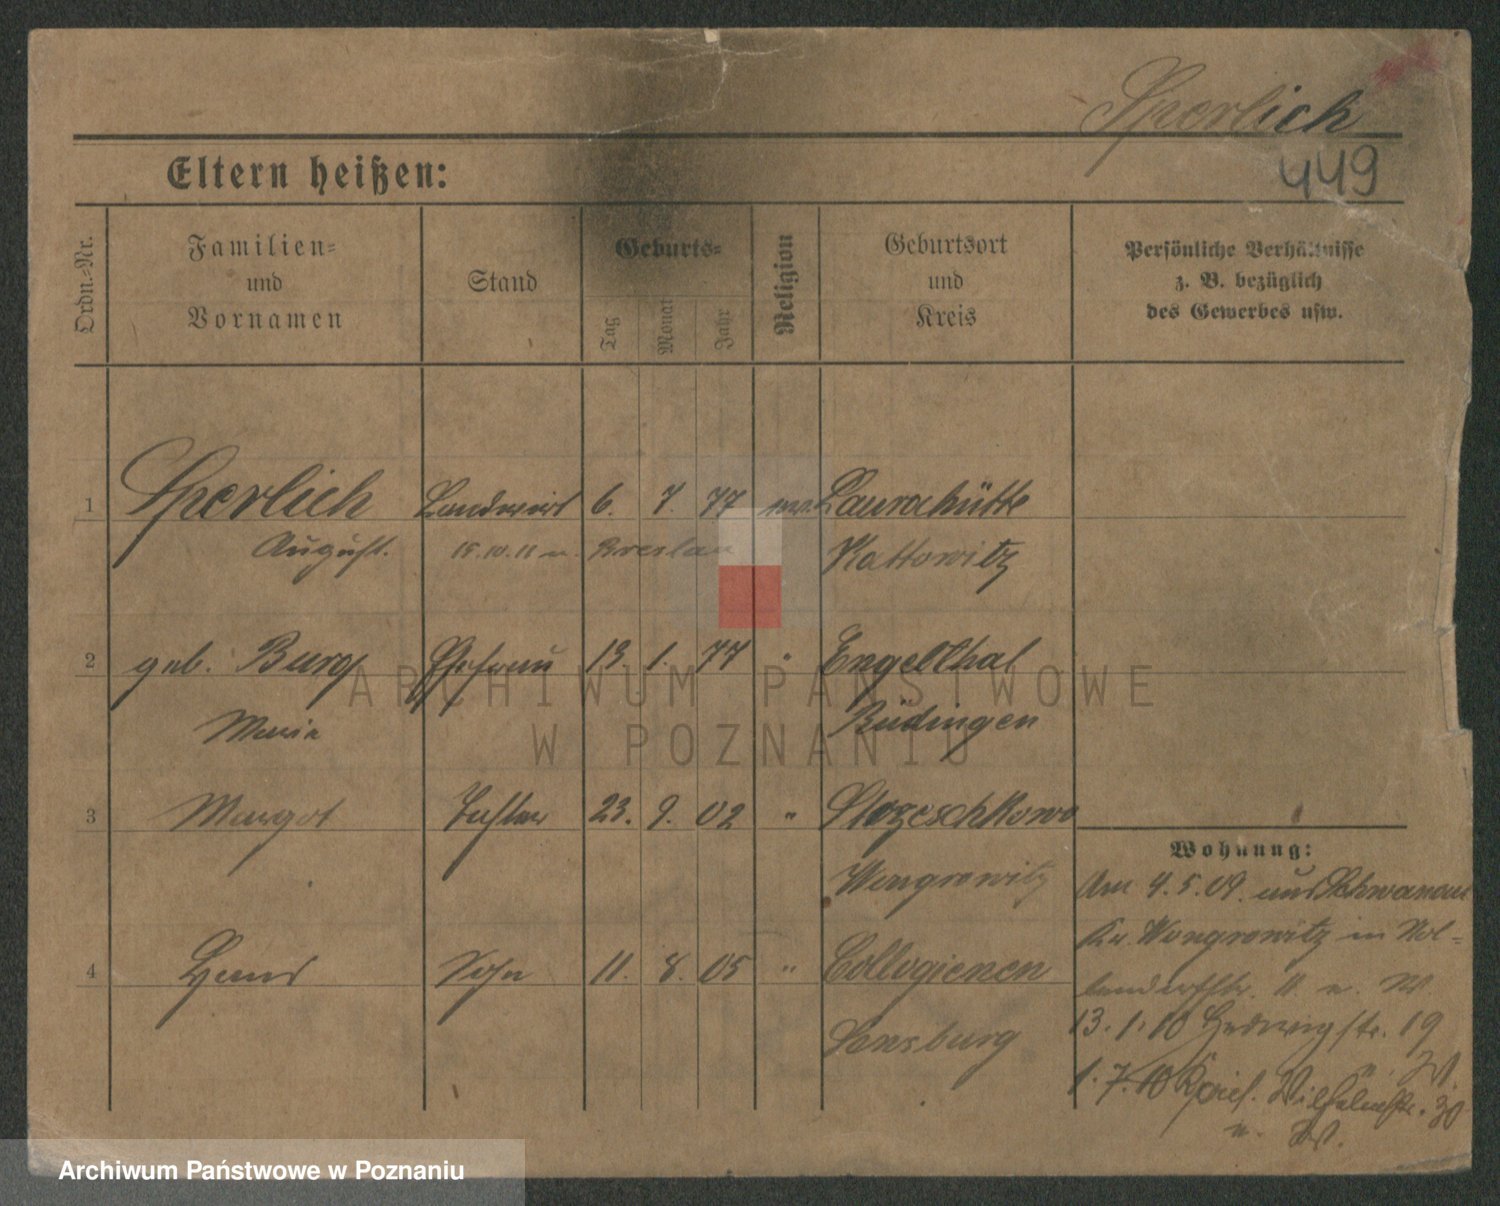 Sperlich
449
Eltern heißen:
Ordn.-Nr.
Familien-
und
Vornamen
Stand
Geburts-
Tag
Monat
Jahr
Religion
Geburtsort
und
Kreis
Persönliche Verhältnisse
z. B. bezüglich
des Gewerbes usw.
1 Sperlich Landwirt 6. 7. 77 Laurahütte
August. 15.10.11 n. Breslau Kattowitz
2 geb. Burg Ehefrau 13 1. 77 " Engelthal
Maria Büdingen
3 Margot Tochter 23. 9. 02 " Stozeschkowo
Wongrowitz
4 Hans Sohn 11. 8. 05 " Collogienen
Sensburg
Wohnung:
Am 4.5.09. aus Schwanau
Kr. Wongrowitz in Hol-
lenderstr. 11 n. W.
13. 1. 10 Hedwigstr. 19
W.
1. 7. 10 Wilhelmstr. 30
n. W.
ARCHIWUM PAŃSTWOWE
W POZNANIU
Archiwum Państwowe w Poznaniu